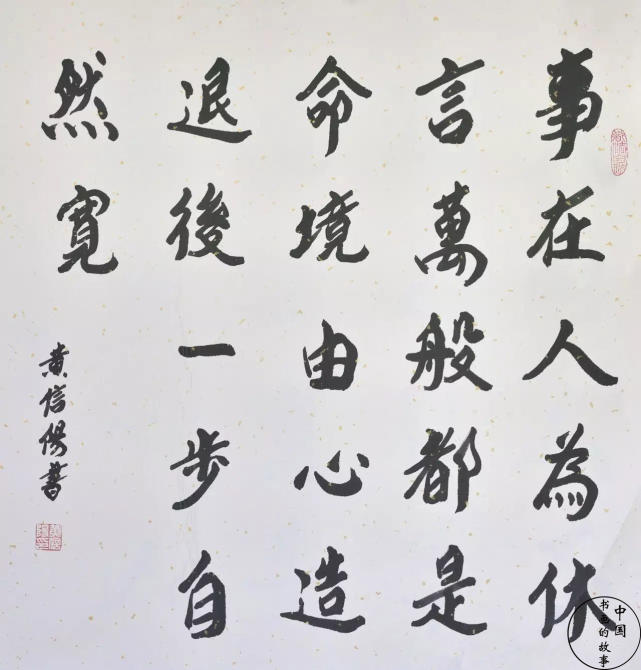 事在人為休
言萬般都是
命境由心造
退後一步自
然寬
黄信陽書
中国
书画的故事